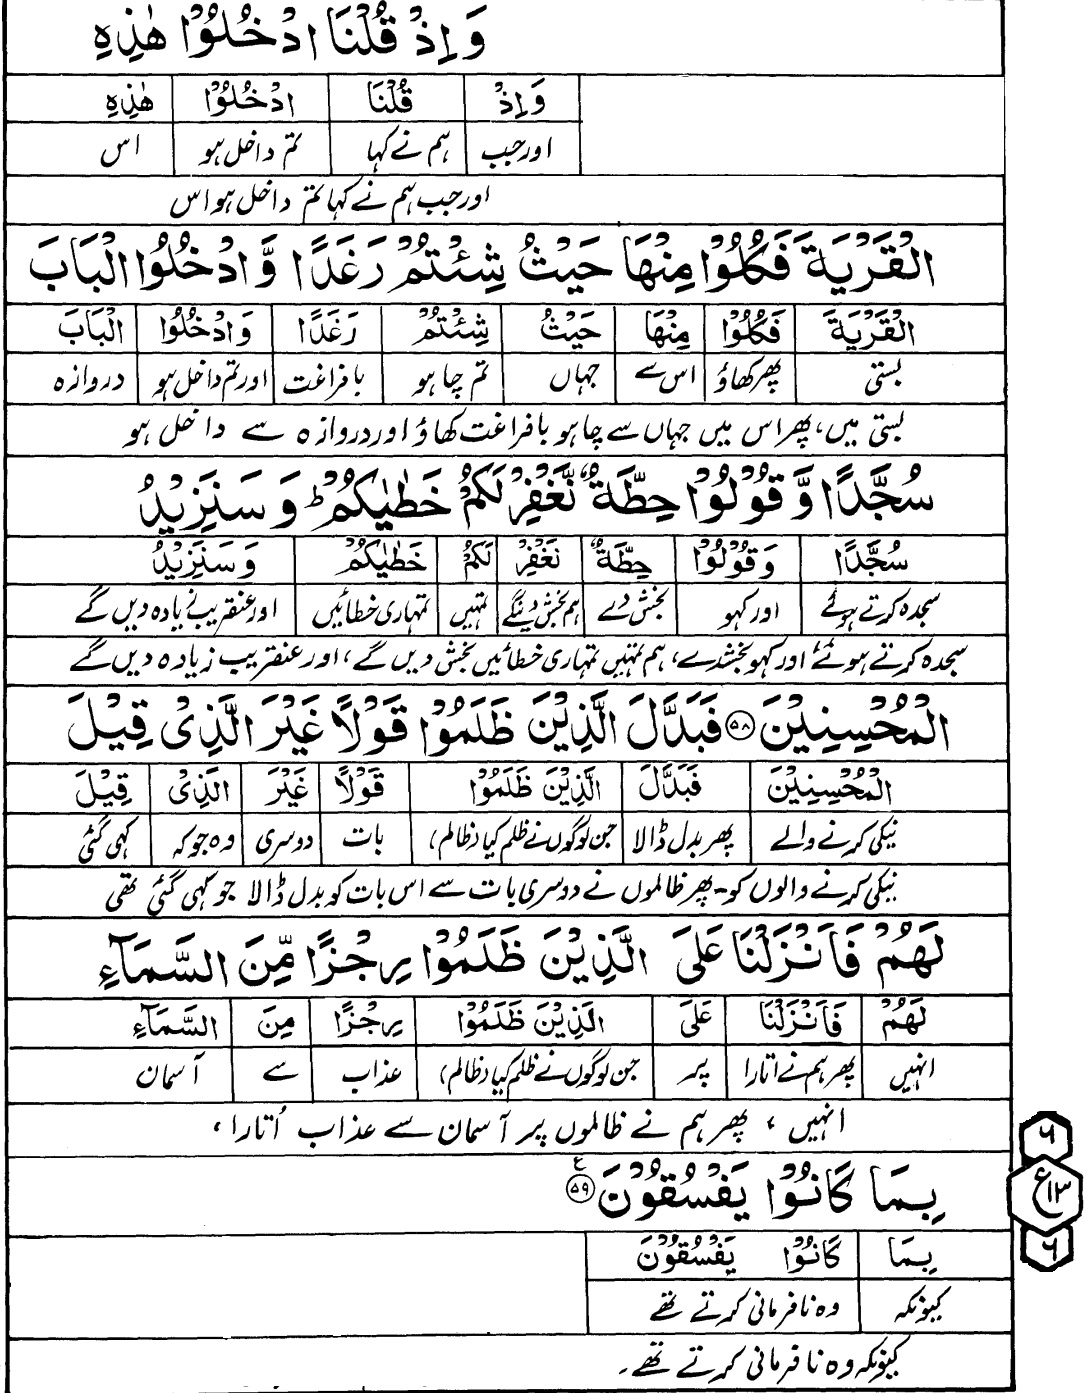 وَاِذْ قُلْنَا ادْخُلُوْا هٰذِهِ
وَاِذْ قُلْنَا ادْخُلُوْا هٰذِهِ
اور جب ہم نے کہا تم داخل ہو اس
اور جب ہم نے کہا تم داخل ہو اس
الْقَرْيَةَ فَكُلُوْا مِنْهَا حَيْثُ شِئْتُمْ رَغَدًا وَّادْخُلُوا الْبَابَ
الْقَرْيَةَ فَكُلُوْا مِنْهَا حَيْثُ شِئْتُمْ رَغَدًا وَادْخُلُوا الْبَابَ
بستی پھر کھاؤ اس سے جہاں تم چاہو بافراغت اور تم داخل ہو دروازہ
بستی میں، پھر اس میں جہاں سے چاہو بافراغت کھاؤ اور دروازہ سے داخل ہو
سُجَّدًا وَّقُوْلُوْا حِطَّةٌ نَّغْفِرْ لَكُمْ خَطٰيٰكُمْ ؕ وَسَنَزِيْدُ
سُجَّدًا وَقُوْلُوْا حِطَّةٌ نَغْفِرْ لَكُمْ خَطٰيٰكُمْ وَسَنَزِيْدُ
سجدہ کرتے ہوئے اور کہو بخش دے ہم بخش دینگے تمہیں تمہاری خطائیں اور عنقریب زیادہ دیں گے
سجدہ کرتے ہوئے، اور کہو بخشدے، ہم تمہیں تمہاری خطائیں بخش دیں گے، اور عنقریب زیادہ دیں گے
الْمُحْسِنِيْنَ ۵۸ فَبَدَّلَ الَّذِيْنَ ظَلَمُوْا قَوْلًا غَيْرَ الَّذِىْ قِيْلَ
الْمُحْسِنِيْنَ فَبَدَّلَ الَّذِيْنَ ظَلَمُوْا قَوْلًا غَيْرَ الَّذِىْ قِيْلَ
نیکی کرنے والے پھر بدل ڈالا جن لوگوں نے ظلم کیا (ظالم) بات دوسری وہ جو کہ کہی گئی
نیکی کرنے والوں کو۔ پھر ظالموں نے دوسری بات سے اس بات کو بدل ڈالا جو کہی گئی تھی
لَهُمْ فَاَنْزَلْنَا عَلَى الَّذِيْنَ ظَلَمُوْا رِجْزًا مِّنَ السَّمَآءِ
لَهُمْ فَاَنْزَلْنَا عَلَى الَّذِيْنَ ظَلَمُوْا رِجْزًا مِنَ السَّمَآءِ
انہیں پھر ہم نے اتارا پر جن لوگوں نے ظلم کیا (ظالم) عذاب سے آسمان
انہیں، پھر ہم نے ظالموں پر آسمان سے عذاب اُتارا،
بِمَا كَانُوْا يَفْسُقُوْنَ ۵۹ ع
بِمَا كَانُوْا يَفْسُقُوْنَ
کیونکہ وہ نافرمانی کرتے تھے
کیونکہ وہ نافرمانی کرتے تھے۔
۶
ع ۱۳
۶